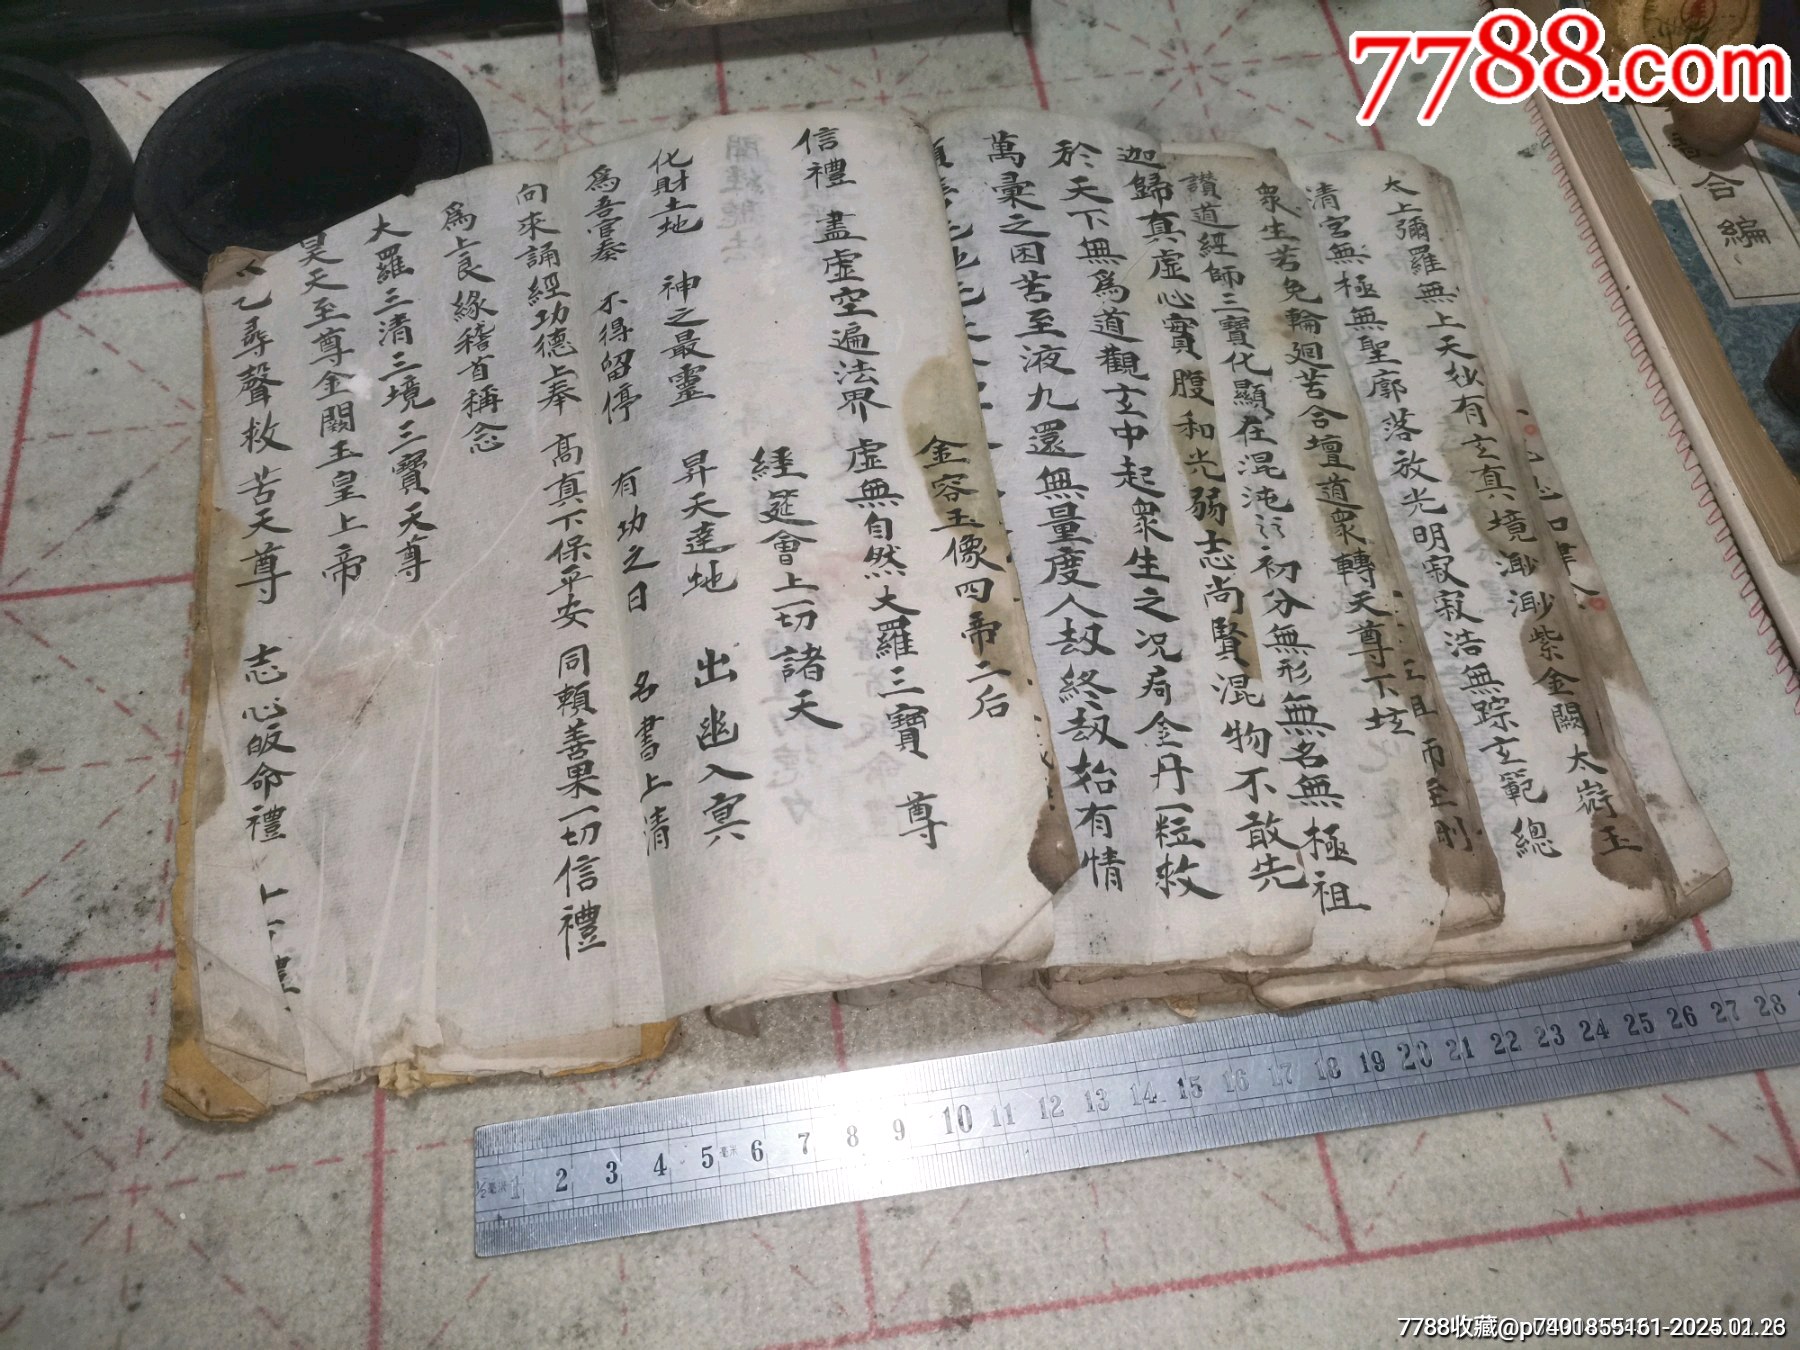 7788.com
合編
太上彌羅無上天妙有玄真境渺渺紫金闕太微玉
清宮無極無聖廓落放光明寂寂浩無踪玄範總
眾生苦免輪迴苦合壇道眾轉天尊下垓
讚道經師三寶化顯在混沌初分無形無名無極祖
迦歸真虛心實腹和光弱志尚賢混物不敢先
於天下無為道觀玄中起眾生之況局金丹一粒救
萬彙之困苦至液九還無量度人劫終劫始有情
金容玉像四帝二后
信禮 盡虛空遍法界虛無自然大羅三寶 尊
經筵會上一切諸天
化財土地 神之最靈 昇天達地 出幽入冥
為吾官奏 不得留停 有功之日 名書上清
向來誦經功德上奉 高真下保平安 同賴善果一切信禮
為上良緣稽首稱念
大羅三清三境三寶天尊
昊天至尊金闕玉皇上帝
乙尋聲救苦天尊 志心皈命禮
1 2 3 4 5 6 7 8 9 10 11 12 13 14 15 16 17 18 19 20 21 22 23 24 25 26 27 28
7788收藏